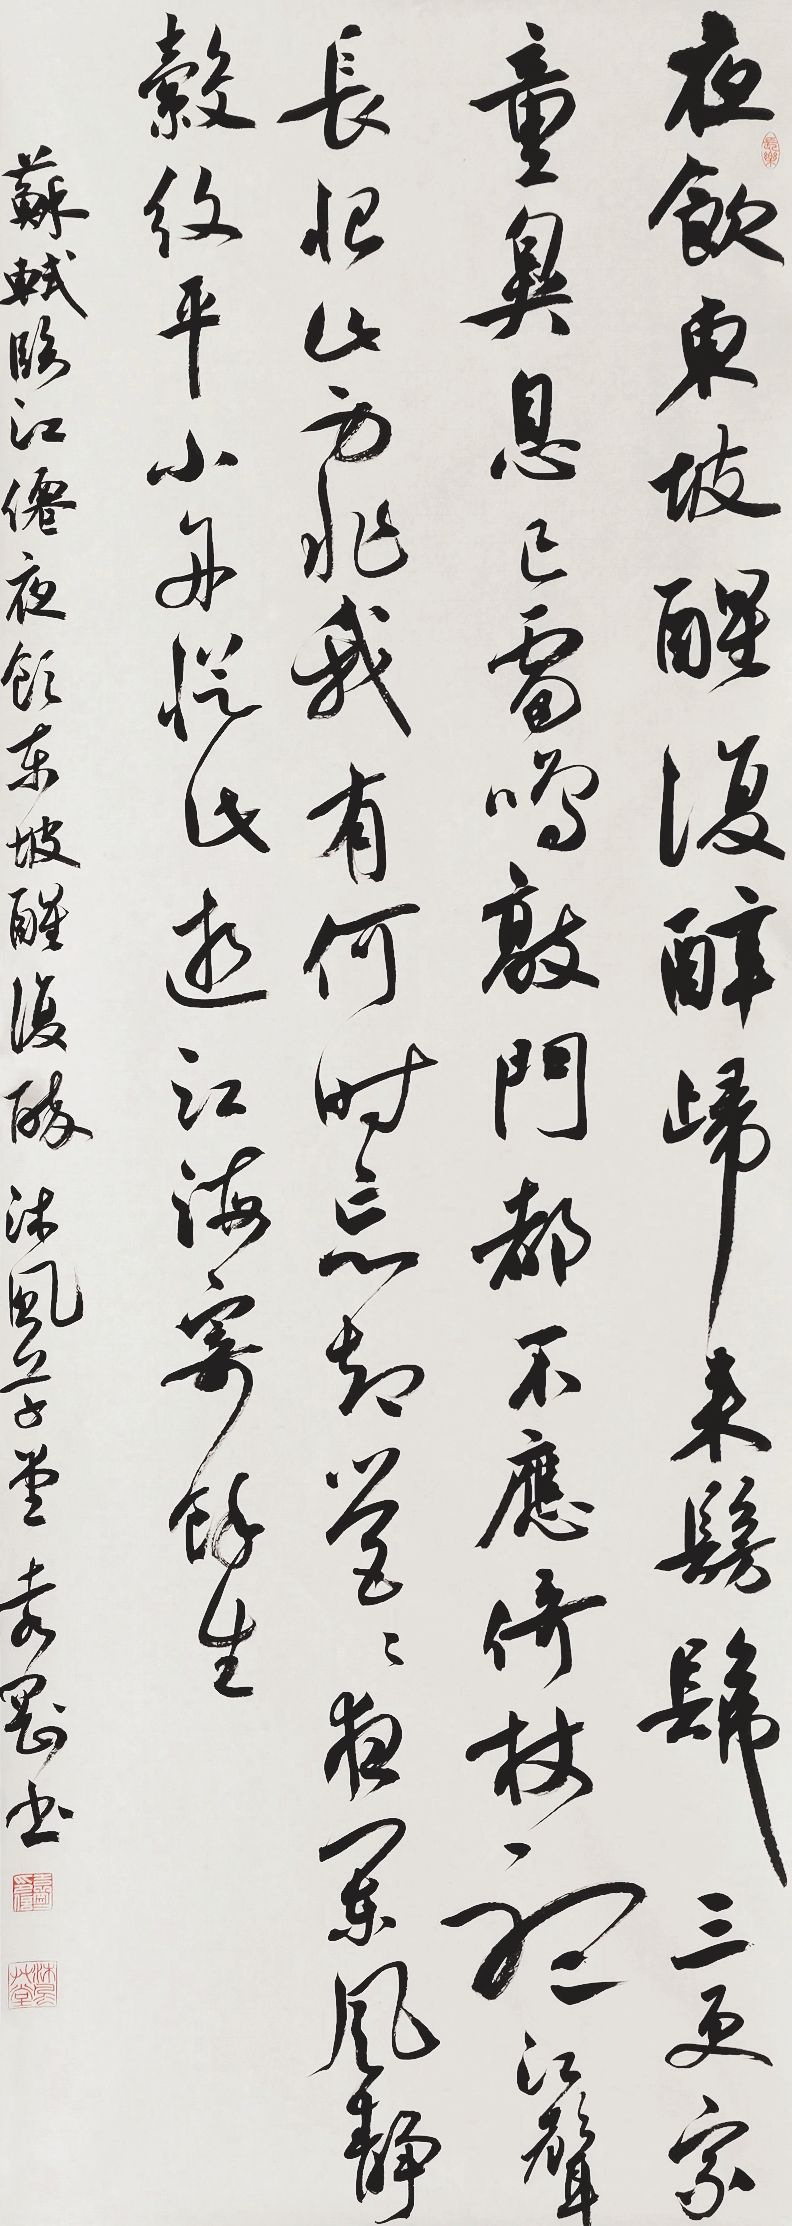 夜飲東坡醒復醉歸来髣髴三更家
童鼻息已雷鳴敲門都不應倚杖聽江聲
長恨此身非我有何时忘却營〻夜闌风静
縠紋平小舟從此逝江海寄餘生
蘇軾臨江僊夜飲东坡醒復醉沐風草堂袁剛书